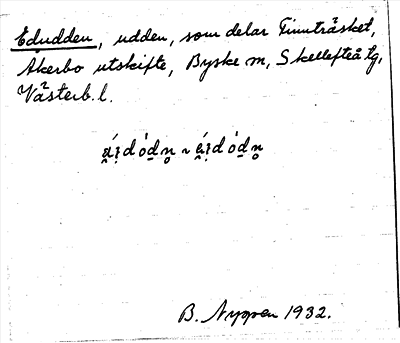 Edudden, udden, som delar Finnträsket,
Åkerbo utskifte, Byske sn, Skellefteå tg,
Västerb. l.
B. Nygren 1932.